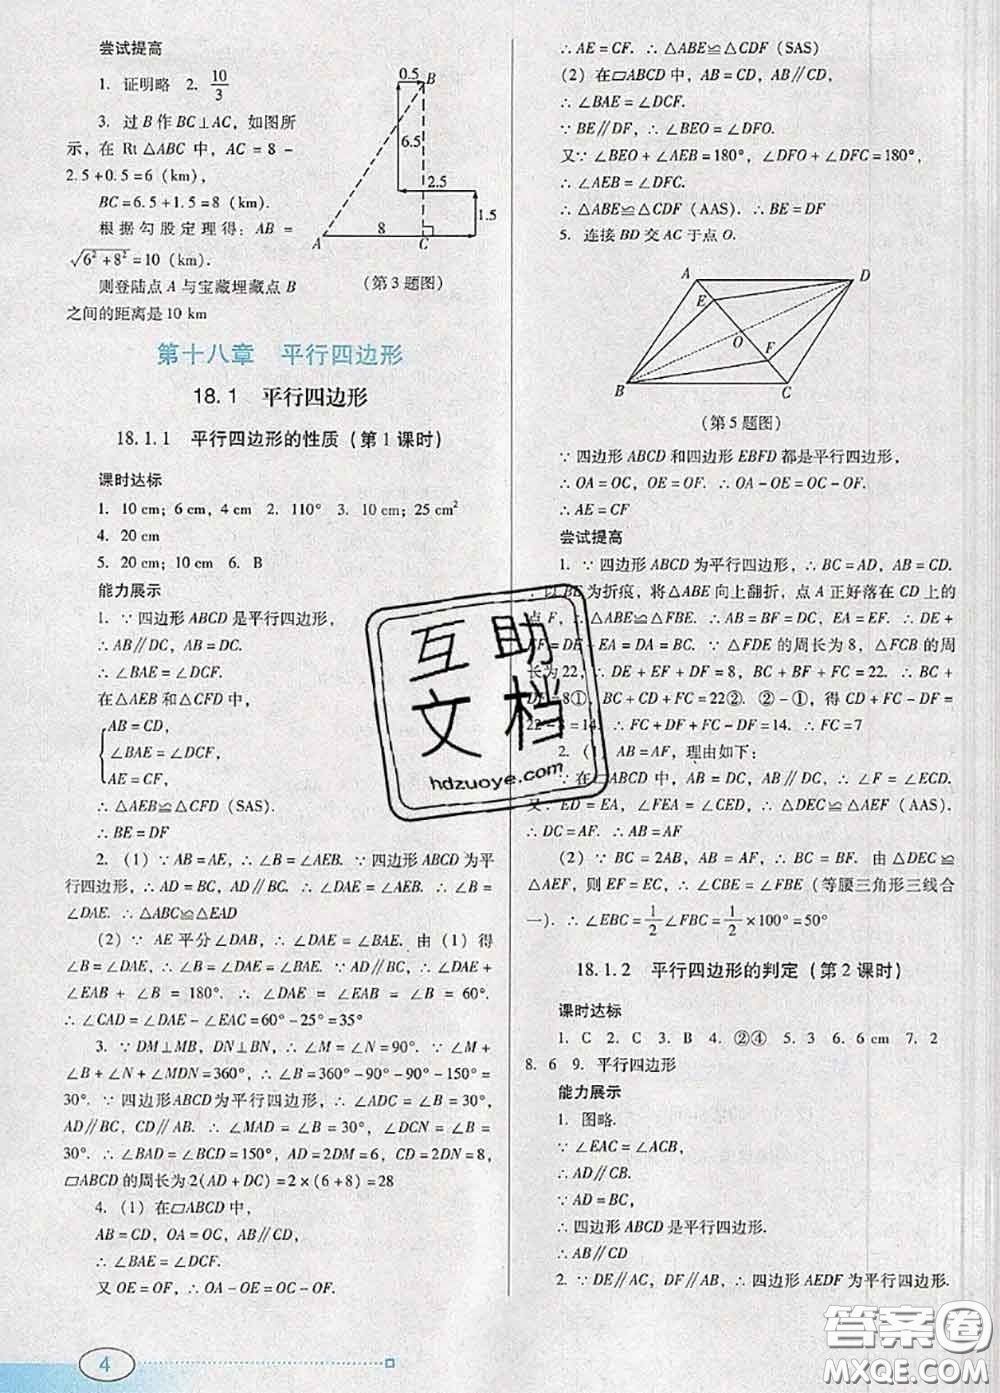 尝试提高
1. 证明略 2. 10/3
3. 过 B 作 BC⊥AC，如图所
示，在 Rt △ABC 中，AC = 8 −
2.5+0.5=6 (km)，
BC=6.5+1.5=8 (km).
根据勾股定理得：AB =
√(6²+8²)=10 (km).
则登陆点 A 与宝藏埋藏点 B
之间的距离是 10 km
0.5
B
6.5
2.5
1.5
8
A
C
(第 3 题图)
第十八章 平行四边形
18.1 平行四边形
18.1.1 平行四边形的性质（第 1 课时）
课时达标
1. 10 cm；6 cm，4 cm 2. 110° 3. 10 cm；25 cm²
4. 20 cm
5. 20 cm；10 cm 6. B
能力展示
1. ∵ 四边形 ABCD 是平行四边形，
∴ AB∥DC，AB=DC.
∴ ∠BAE=∠DCF.
在△AEB 和△CFD 中，
AB=CD，
∠BAE=∠DCF，
AE=CF，
∴ △AEB≌△CFD (SAS).
∴ BE=DF
2. (1) ∵ AB=AE，∴ ∠B=∠AEB. ∵ 四边形 ABCD 为平
行四边形，∴ AD=BC，AD∥BC，∴ ∠DAE=∠AEB. ∴ ∠B=
∠DAE. ∴ △ABC≌△EAD
(2) ∵ AE 平分∠DAB，∴ ∠DAE=∠BAE. 由（1）得
∠B = ∠DAE，∴ ∠BAE = ∠DAE = ∠B. ∵ ∠DAE +
∠EAB + ∠B = 180°. ∴ ∠DAE = ∠EAB = ∠B = 60°.
∴ ∠CAD=∠DAE−∠EAC=60°−25°=35°
3. ∵ DM⊥MB，DN⊥BN，∴ ∠M=∠N=90°. ∵ ∠M+
∠B+∠N+∠MDN=360°，∴ ∠B=360°−90°−90°−150°=
30°. ∵ 四边形ABCD为平行四边形，∴ ∠ADC=∠B=30°，
AD∥BC，CD∥AB. ∴ ∠MAD = ∠B = 30°，∠DCN = ∠B =
30°. ∴ ∠BAD=∠BCD=150°，AD=2DM=6，CD=2DN=8，
▱ABCD 的周长为 2(AD+DC)=2×(6+8)=28
4. (1) 在▱ABCD 中，
AB=CD，OA=OC，AB∥CD，
∴ ∠BAE=∠DCF.
又 OE=OF，∴ OA−OE=OC−OF.
4
∴ AE=CF. ∴ △ABE≌△CDF (SAS)
(2) 在▱ABCD 中，AB=CD，AB∥CD，
∴ ∠BAE=∠DCF.
∵ BE∥DF，∴ ∠BEO=∠DFO.
又∵ ∠BEO+∠AEB=180°，∠DFO+∠DFC=180°，
∴ ∠AEB=∠DFC.
∴ △ABE≌△CDF (AAS). ∴ BE=DF
5. 连接 BD 交 AC 于点 O.
A
D
E
O
F
B
C
(第 5 题图)
∵ 四边形 ABCD 和四边形 EBFD 都是平行四边形，
∴ OA=OC，OE=OF. ∴ OA−OE=OC−OF.
∴ AE=CF
尝试提高
1. ∵ 四边形 ABCD 为平行四边形，∴ BC=AD，AB=CD.
∵ 以 BE 为折痕，将△ABE 向上翻折，点 A 正好落在 CD 上的
点 F，∴ △ABE≌△FBE. ∴ AB=BF=DC，EA=EF. ∴ DE+
EF=DE+EA=DA=BC. ∵ △FDE 的周长为 8，△FCB 的周
长为 22，∴ DE+EF+DF=8，BC+BF+FC=22. ∴ BC+
DF=8①，BC+CD+FC=22②. ②−①，得 CD+FC−DF=
22−8=14. ∴ FC+DF+FC−DF=14. ∴ FC=7
2. (1) AB=AF，理由如下：
∵ 在▱ABCD 中，AB=DC，AB∥DC，∴ ∠F=∠ECD.
又∵ ED=EA，∠FEA=∠CED，∴ △DEC≌△AEF (AAS).
∴ DC=AF. ∴ AB=AF
(2) ∵ BC=2AB，AB=AF，∴ BC=BF. 由△DEC≌
△AEF，则 EF=EC，∴ ∠CBE=∠FBE（等腰三角形三线合
一). ∴ ∠EBC=1/2∠FBC=1/2×100°=50°
18.1.2 平行四边形的判定（第 2 课时）
课时达标
1. C 2. C 3. B 4. ②④ 5. 3 6. 6 cm 7. 2
8. 6 9. 平行四边形
能力展示
1. 图略.
∵ ∠EAC=∠ACB，
∴ AD∥CB.
∵ AD=BC，
∴ 四边形 ABCD 是平行四边形.
∴ AB∥CD
2. ∵ DE∥AC，DF∥AB，∴ 四边形 AEDF 为平行四边形.
互助
文档
hdzuoye.com
答案圈
MXQE.COM